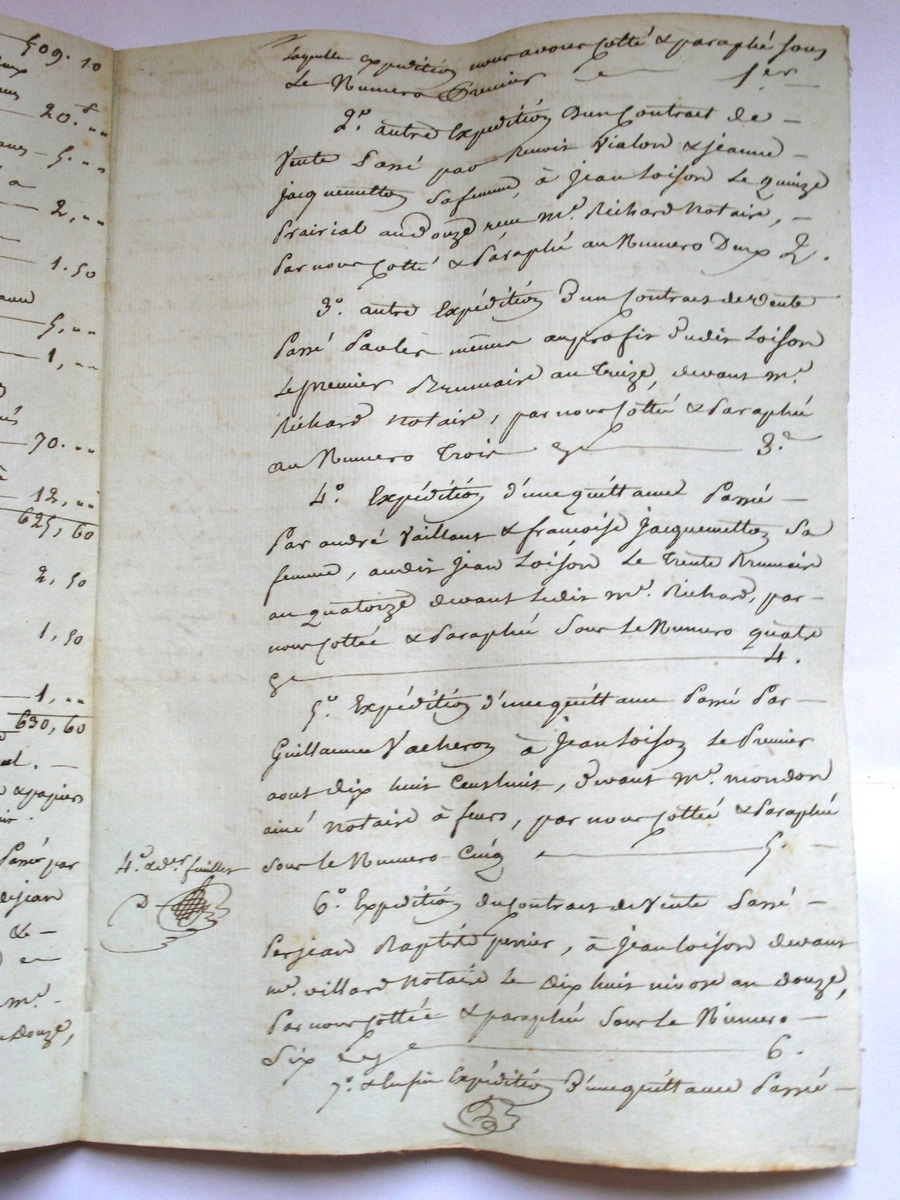 509. 10
20. "
5. "
2, "
1. 50
5, "
1, "
70. "
12, "
625, 60
2, 50
1, 50
1, "
630, 60
& papier
Passé par
& —
me —
douze,
Laquelle expedition nous avons Cotté & paraphé sous
Le Numero Premier — 1er —
2o. autre Expédition d'un Contrat de —
Vente Passé par Benoit Vialon & jeanne —
jacquemetton Sa femme, à Jean Loison Le quinze
Prairial an Douze reçu Me. Richard Notaire, —
Par nous Cotté & Paraphé au Numero Deux 2.
3o. autre Expédition d'un Contrat de Vente
Passé Par les mêmes au profit dudit Loison
Le premier Brumaire an Treize, devant Me.
Richard Notaire, par nous Cotté & Paraphé
au Numero Trois — 3.
4o. Expédition d'une quittance Passé —
Par andré Vaillant & francoise jacquemetton Sa
femme, audit Jean Loison Le Trente Brumaire
an quatorze devant Ledit Me. Richard, par —
nous Cottée & Paraphé Sous Le Numero quatre
— 4.
5o. Expédition d'une quittance Passé Par —
Guillaume Vacheron à Jean Loison Le Premier
aout Dix huit Cent huit, devant Me. mondon
ainé Notaire à feurs, par nous Cotté & Paraphé
Sous le Numero Cinq — 5. —
4e. & der. feuillet
6o. Expédition du Contrat de Vente Passé —
Par jean Baptiste perrier, à Jean Loison devant
Me. villard Notaire Le Dix huit nivose an douze,
Par nous Cottée & paraphé Sous Le Numero —
Six — 6.
7o. & Enfin Expédition D'une quittance Passé —